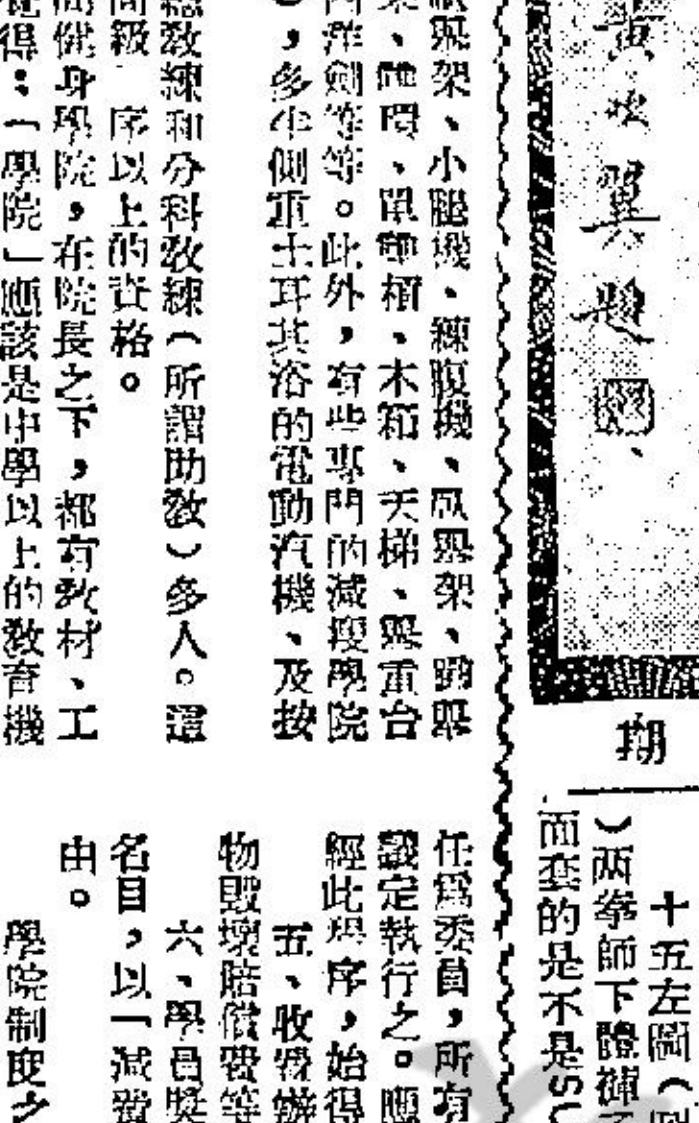 黄　翼題
期
十五左圖（
）两拳師下體褲
而套的是不是SU
臥舉架、小腿機、練腹機、臥舉架、蹲舉
、單雙槓、木箱、天梯、舉重台
西洋劍等等。此外，有些專門的減瘦學院
，多半側重土耳其浴的電動汽機、及按
總教練和分科教練（所謂助教）多人。這
高級　序以上的資格。
健身學院，在院長之下，都有教材、工
覺得：「學院」應該是中學以上的教育機
任爲委員，所有
議定執行之。應
經此程序，始得
五、收費辦
物毀壞賠償費等
六、學員獎
名目，以「減費
由。
學院制度之